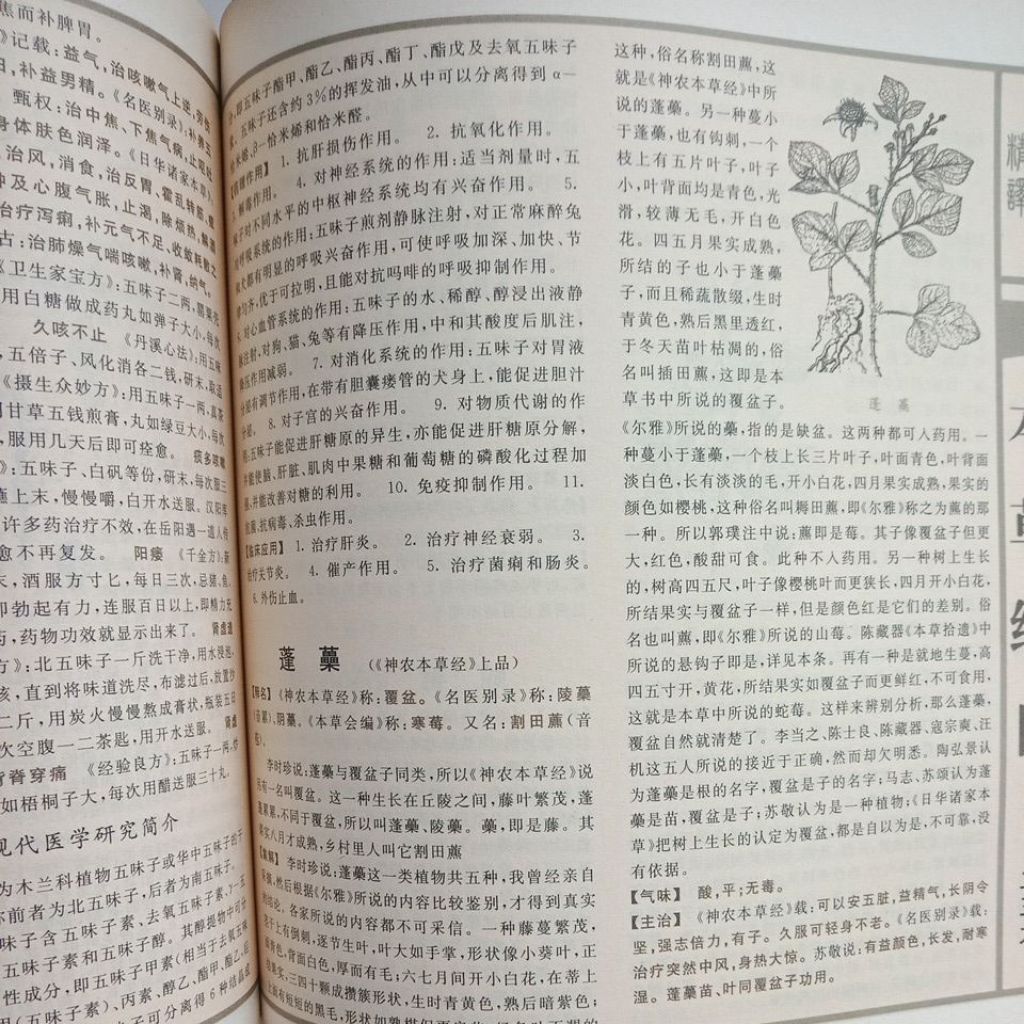 焦而补脾胃。
》记载：益气，治咳嗽气上逆，劳伤
，补益男精。《名医别录》：补养五
甄权：治中焦、下焦气病，止呕
身体肤色润泽。《日华诸家本草》
，治风，消食，治反胃，霍乱转筋，
中及心腹气胀，止渴，除烦热，解
治疗泻痢，补元气不足，收敛耗散之
古：治肺燥气喘咳嗽，补肾，纳气。
《卫生家宝方》：五味子二两，罂粟壳
用白糖做成药丸如弹子大小，每次
久咳不止　《丹溪心法》：用五味
，五倍子、风化消各二钱，研末，
《摄生众妙方》：用五味子一两，真茶
甘草五钱煎膏，丸如绿豆大小，每次
，服用几天后即可痊愈。　痰多咳嗽
》：五味子、白矾等份，研末，每次服三
蘸上末，慢慢嚼，白开水送服。汉阳库
许多药治疗不效，在岳阳遇一道人传
愈不再复发。　阳痿　《千金方》：新
末，酒服方寸匕，每日三次，忌猪、鱼、
即勃起有力，连服百日以上，即精力充
药，药物功效就显示出来了。　肾虚遗
方》：北五味子一斤洗干净，用水浸泡，
核，直到将味道洗尽，布滤过后，放置炒
二斤，用炭火慢慢熬成膏状，瓶装五日
次空腹一二茶匙，用开水送服。　肾虚
背脊穿痛　《经验良方》：五味子一两，炒
如梧桐子大，每次用醋送服三十丸。
现代医学研究简介
为木兰科植物五味子或华中五味子的干
称前者为北五味子，后者为南五味子。
味子含五味子素、去氧五味子素、γ-五
五味子素和五味子醇。其醇提物中可分
性成分，即五味子甲素（相当于去氧五味
（五味子素）、丙素、醇乙、酯甲、酯乙、
子可分离得6种结晶成
分，即五味子酯甲、酯乙、酯丙、酯丁、酯戊及去氧五味子
素。五味子还含约3%的挥发油，从中可以分离得到α-
恰米烯、β-恰米烯和恰米醛。
1. 抗肝损伤作用。　2. 抗氧化作用。
3. 解毒作用。　4. 对神经系统的作用：适当剂量时，五
味子对不同水平的中枢神经系统均有兴奋作用。　5.
对呼吸系统的作用：五味子煎剂静脉注射，对正常麻醉兔
和犬都有明显的呼吸兴奋作用，可使呼吸加深、加快、节
律匀齐，优于可拉明，且能对抗吗啡的呼吸抑制作用。
6. 对心血管系统的作用：五味子的水、稀醇、醇浸出液静
脉注射，对狗、猫、兔等有降压作用，中和其酸度后肌注，
降压作用减弱。　7. 对消化系统的作用：五味子对胃液
分泌有调节作用，在带有胆囊瘘管的犬身上，能促进胆汁
分泌。　8. 对子宫的兴奋作用。　9. 对物质代谢的作
用：五味子能促进肝糖原的异生，亦能促进肝糖原分解，
并能使脑、肝脏、肌肉中果糖和葡萄糖的磷酸化过程加
强，并能改善对糖的利用。　10. 免疫抑制作用。　11.
抗菌、抗病毒、杀虫作用。
【临床应用】　1. 治疗肝炎。　2. 治疗神经衰弱。　3.
治疗关节炎。　4. 催产作用。　5. 治疗菌痢和肠炎。
6. 外伤止血。
蓬蘽　（《神农本草经》上品）
【释名】《神农本草经》称：覆盆。《名医别录》称：陵蘽
（音累）、阴蘽。《本草会编》称：寒莓。又名：割田藨（音
苞）。
李时珍说：蓬蘽与覆盆子同类，所以《神农本草经》说
又有一名叫覆盆。这一种生长在丘陵之间，藤叶繁茂，蓬
蓬累累，不同于覆盆，所以叫蓬蘽、陵蘽。蘽，即是藤。其
果实八月才成熟，乡村里人叫它割田藨
【集解】　李时珍说：蓬蘽这一类植物共五种，我曾经亲自
采摘，然后根据《尔雅》所说的内容比较鉴别，才得到真实
的结论。各家所说的内容都不可采信。一种藤蔓繁茂，
茎干上有倒刺，逐节生叶，叶大如手掌，形状像小葵叶，正
面青色，背面白色，厚而有毛；六七月间开小白花，在蒂上
结果实，三四十颗成攒簇形状，生时青黄色，熟后暗紫色；
上面有短短的黑毛，形状如熟椹但更扁
这种，俗名称割田藨，这
就是《神农本草经》中所
说的蓬蘽。另一种蔓小
于蓬蘽，也有钩刺，一个
枝上有五片叶子，叶子
小，叶背面均是青色，光
滑，较薄无毛，开白色
花。四五月果实成熟，
所结的子也小于蓬蘽
子，而且稀疏散缀，生时
青黄色，熟后黑里透红，
于冬天苗叶枯凋的，俗
名叫插田藨，这即是本
草书中所说的覆盆子。
蓬蘽
《尔雅》所说的蘽，指的是缺盆。这两种都可入药用。一
种蔓小于蓬蘽，一个枝上长三片叶子，叶面青色，叶背面
淡白色，长有淡淡的毛，开小白花，四月果实成熟，果实的
颜色如樱桃，这种俗名叫耨田藨，即《尔雅》称之为藨的那
一种。所以郭璞注中说：藨即是莓。其子像覆盆子但更
大，红色，酸甜可食。此种不入药用。另一种树上生长
的，树高四五尺，叶子像樱桃叶而更狭长，四月开小白花，
所结果实与覆盆子一样，但是颜色红是它们的差别。俗
名也叫藨，即《尔雅》所说的山莓。陈藏器《本草拾遗》中
所说的悬钩子即是，详见本条。再有一种是就地生蔓，高
四五寸开，黄花，所结果实如覆盆子而更鲜红，不可食用，
这就是本草中所说的蛇莓。这样来辨别分析，那么蓬蘽，
覆盆自然就清楚了。李当之、陈士良、陈藏器、寇宗奭、汪
机这五人所说的接近于正确，然而却欠明悉。陶弘景认
为蓬蘽是根的名字，覆盆是子的名字；马志、苏颂认为蓬
蘽是苗，覆盆是子；苏敬认为是一种植物；《日华诸家本
草》把树上生长的认定为覆盆，都是自以为是，不可靠，没
有依据。
【气味】　酸，平；无毒。
【主治】　《神农本草经》载：可以安五脏，益精气，长阴令
坚，强志倍力，有子。久服可轻身不老。《名医别录》载：
治疗突然中风，身热大惊。苏敬说：有益颜色，长发，耐寒
湿。蓬蘽苗、叶同覆盆子功用。
精
譯